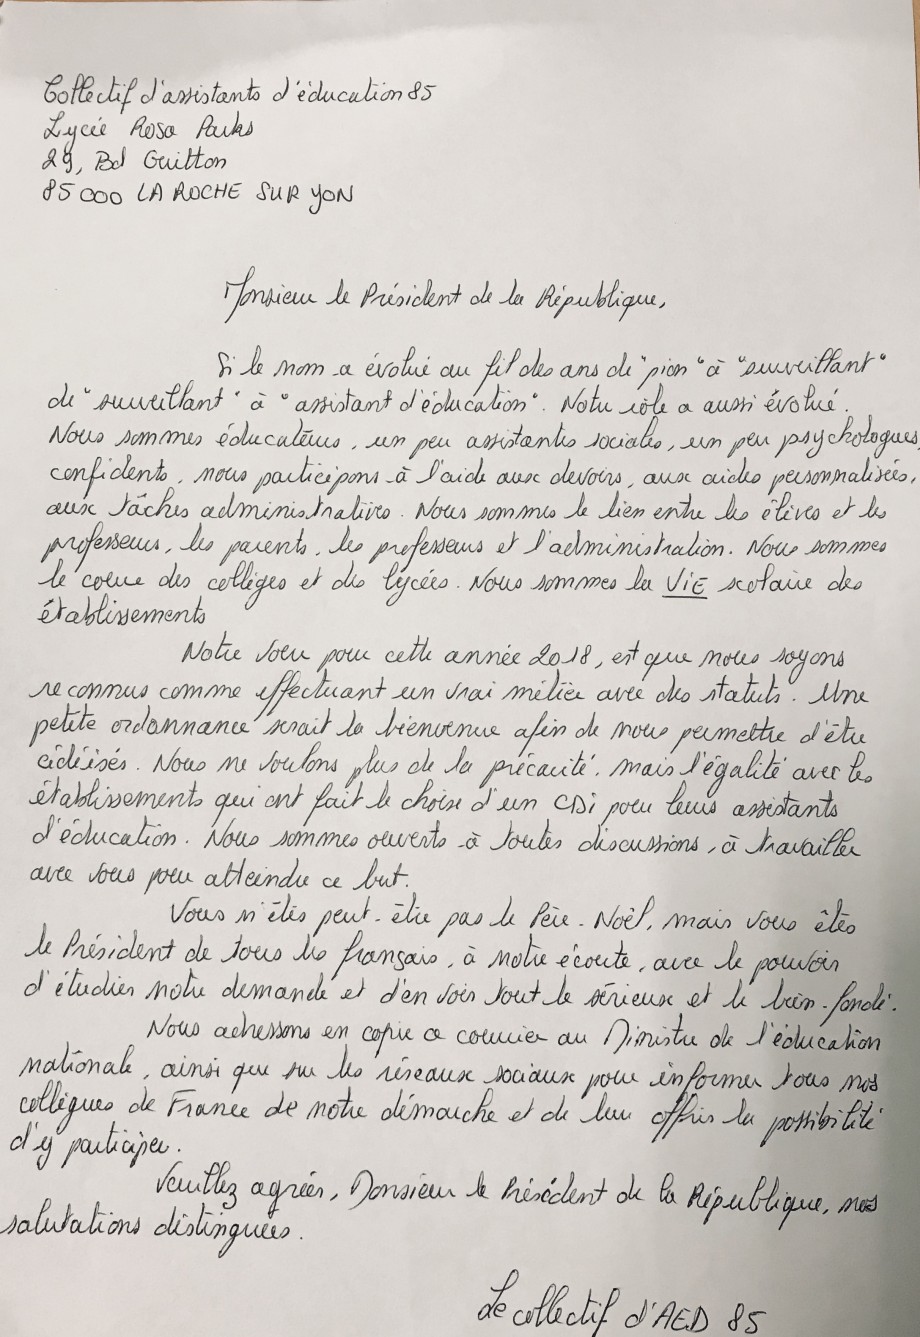 Collectif d'assistants d'éducation 85
Lycée Rosa Parks
29, Bd Guitton
85000 LA ROCHE SUR YON
Monsieur le Président de la République,
Si le nom a évolué au fil des ans de "pion" à "surveillant"
de "surveillant" à "assistant d'éducation". Notre rôle a aussi évolué.
Nous sommes éducateurs, un peu assistantes sociales, un peu psychologues,
confidents, nous participons à l'aide aux devoirs, aux aides personnalisées,
aux tâches administratives. Nous sommes le lien entre les élèves et les
professeurs, les parents, les professeurs et l'administration. Nous sommes
le coeur des collèges et des lycées. Nous sommes la ViE scolaire des
établissements
Notre voeu pour cette année 2018, est que nous soyons
reconnus comme effectuant un vrai métier avec des statuts. Une
petite ordonnance serait la bienvenue afin de nous permettre d'être
cédéisés. Nous ne voulons plus de la précarité, mais l'égalité avec les
établissements qui ont fait le choix d'un CDi pour leurs assistants
d'éducation. Nous sommes ouverts à toutes discussions, à travailler
avec vous pour atteindre ce but.
Vous n'êtes peut-être pas le Père-Noël, mais vous êtes
le Président de tous les français, à notre écoute, avec le pouvoir
d'étudier notre demande et d'en voir tout le sérieux et le bien-fondé.
Nous adressons en copie ce courrier au Ministre de l'éducation
nationale, ainsi que sur les réseaux sociaux pour informer tous nos
collègues de France de notre démarche et de leur offrir la possibilité
d'y participer.
Veuillez agréer, Monsieur le Président de la République, nos
salutations distinguées.
Le collectif d'AED 85